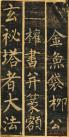 金魚袋柳公
權書并篆額
玄秘塔者大法